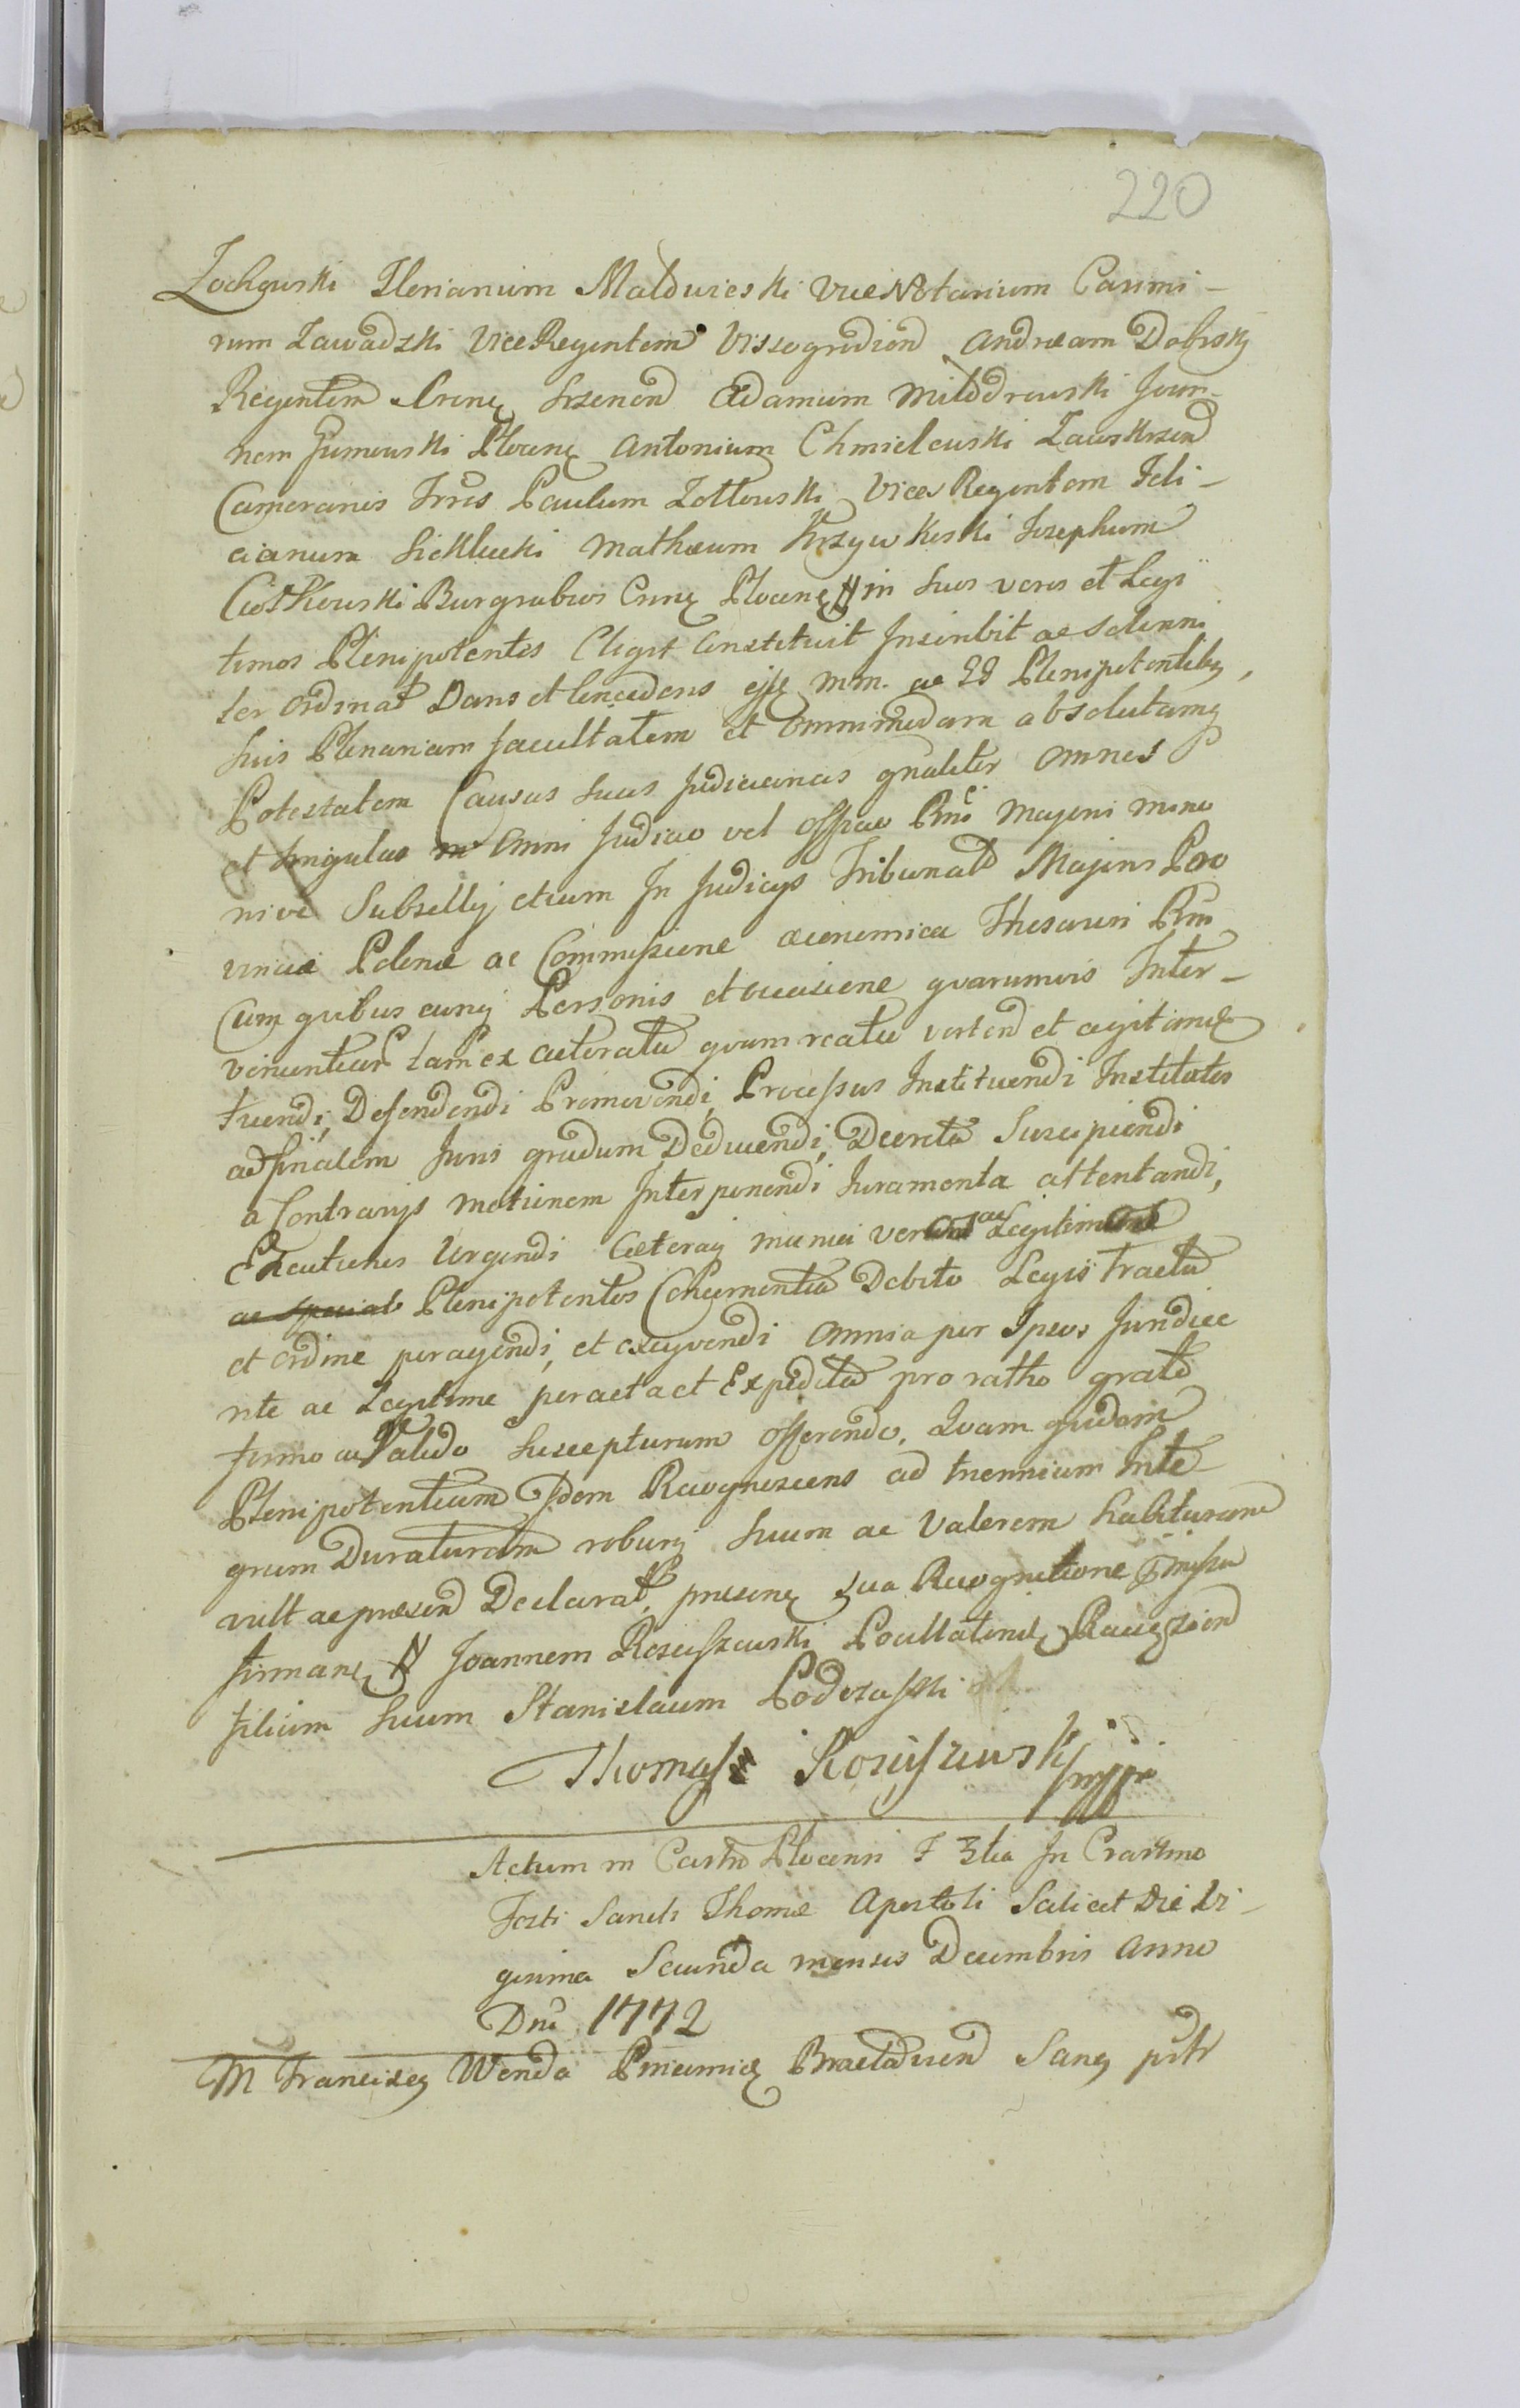 220
Zochowski Florianum Maldwieski ViceNotarium Casimi-
rum Zawadzki ViceRegentem Vissogrodien Andream Dobrski
Regentem Crene Srzenen Adamum Milodrowski Joan-
nem Gumowski Plocens Antonium Chmielewski Zawskrzen
Camerarios Trris Paulum Zottowski Vices Regentem Feli-
cianum Sicklucki Mathaeum Krzywkoski Josephum
Ciotkowski Burgrabios Crene Plocens in Suos veros et Legi
timos Plenipotentes Eligit Constituit Inscribit ac Solenni
ter Ordinat Dans et Concedens ijsq mm. ac GG Plenipotentibq,
Suis Plenariam facultatem et Omnimodam absolutamq
Potestatem Causas Suas Judiciarias gnaliter Omnes
et Singulas in Omni Judicio vel Officio Rni Majori mino
rive Subsellij etiam In Judicijs Tribunal Majoris Pro
vinciae Polonae ac Commissione oeconomica Thesauri Rni
Cum quibus cunq Personis et occasione quarumvis Inter-
venientium tam ex actoratu quam reatu verten et agitan
tuendi, Defendendi Promovendi, Processus Instituendi Institutos
ad finalem Juris gradum Deducendi, Decreta Suscipiendi
a Contrarijs motionem Interponendi Juramenta attentandi,
Executiones Urgendi Caeteraq munia ver ac Legitim
ac special Plenipotentes Concernentia Debito Legis tractu
et ordine peragendi, et exequendi Omnia per Ipsos Juridice
rite ac Legitime peracta et Expedita pro ratho grato
firmo ac Valido Suscepturum offerendo. Quam quidem
Plenipotentiam Idem Recognoscens ad triennium Inte
grum Duraturam roburq Suum ac Valorem habituram
vult ac praesen Declarat, praesens sua Recognitione pmissa
firmans Joannem Rosciszewski Pocillatoris Raciqzien
filium Suum Stanislaum Podczaski
Thomass Rosciszewski mpp
Actum in Castro Plocensi F 3tia In Crastino
Festi Sancti Thomae Apostoli Scilicet Die Vi-
gesima Secunda mensis Decembris Anno
Dni 1772
M Franciscq Wenda Pincernice Braclavien Sanq pstr